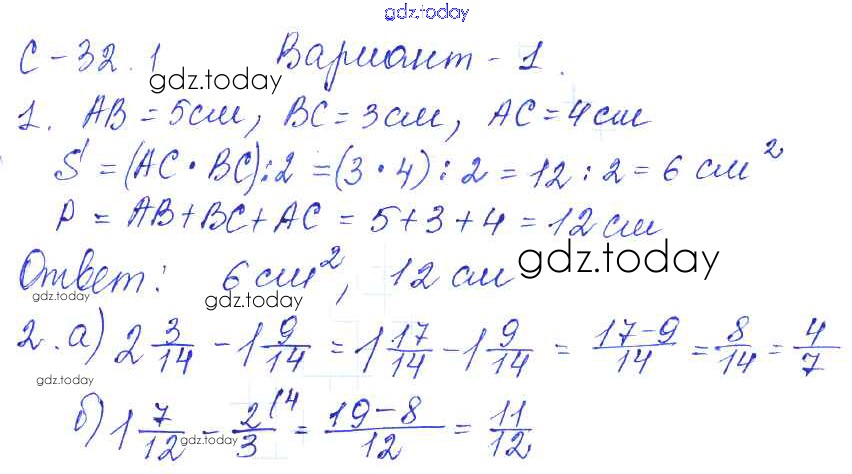 gdz.today
С-32.1 Вариант-1.
gdz.today
1. AB = 5см, BC = 3см, AC = 4см
S = (AC · BC) : 2 = (3 · 4) : 2 = 12 : 2 = 6 см²
P = AB + BC + AC = 5 + 3 + 4 = 12 см
Ответ: 6 см², 12 см
gdz.today
gdz.today gdz.today
2. а) 2 3/14 - 1 9/14 = 1 17/14 - 1 9/14 = 17-9/14 = 8/14 = 4/7
gdz.today
б) 1 7/12 - 2/3 (4 = 19-8/12 = 11/12
gdz.today